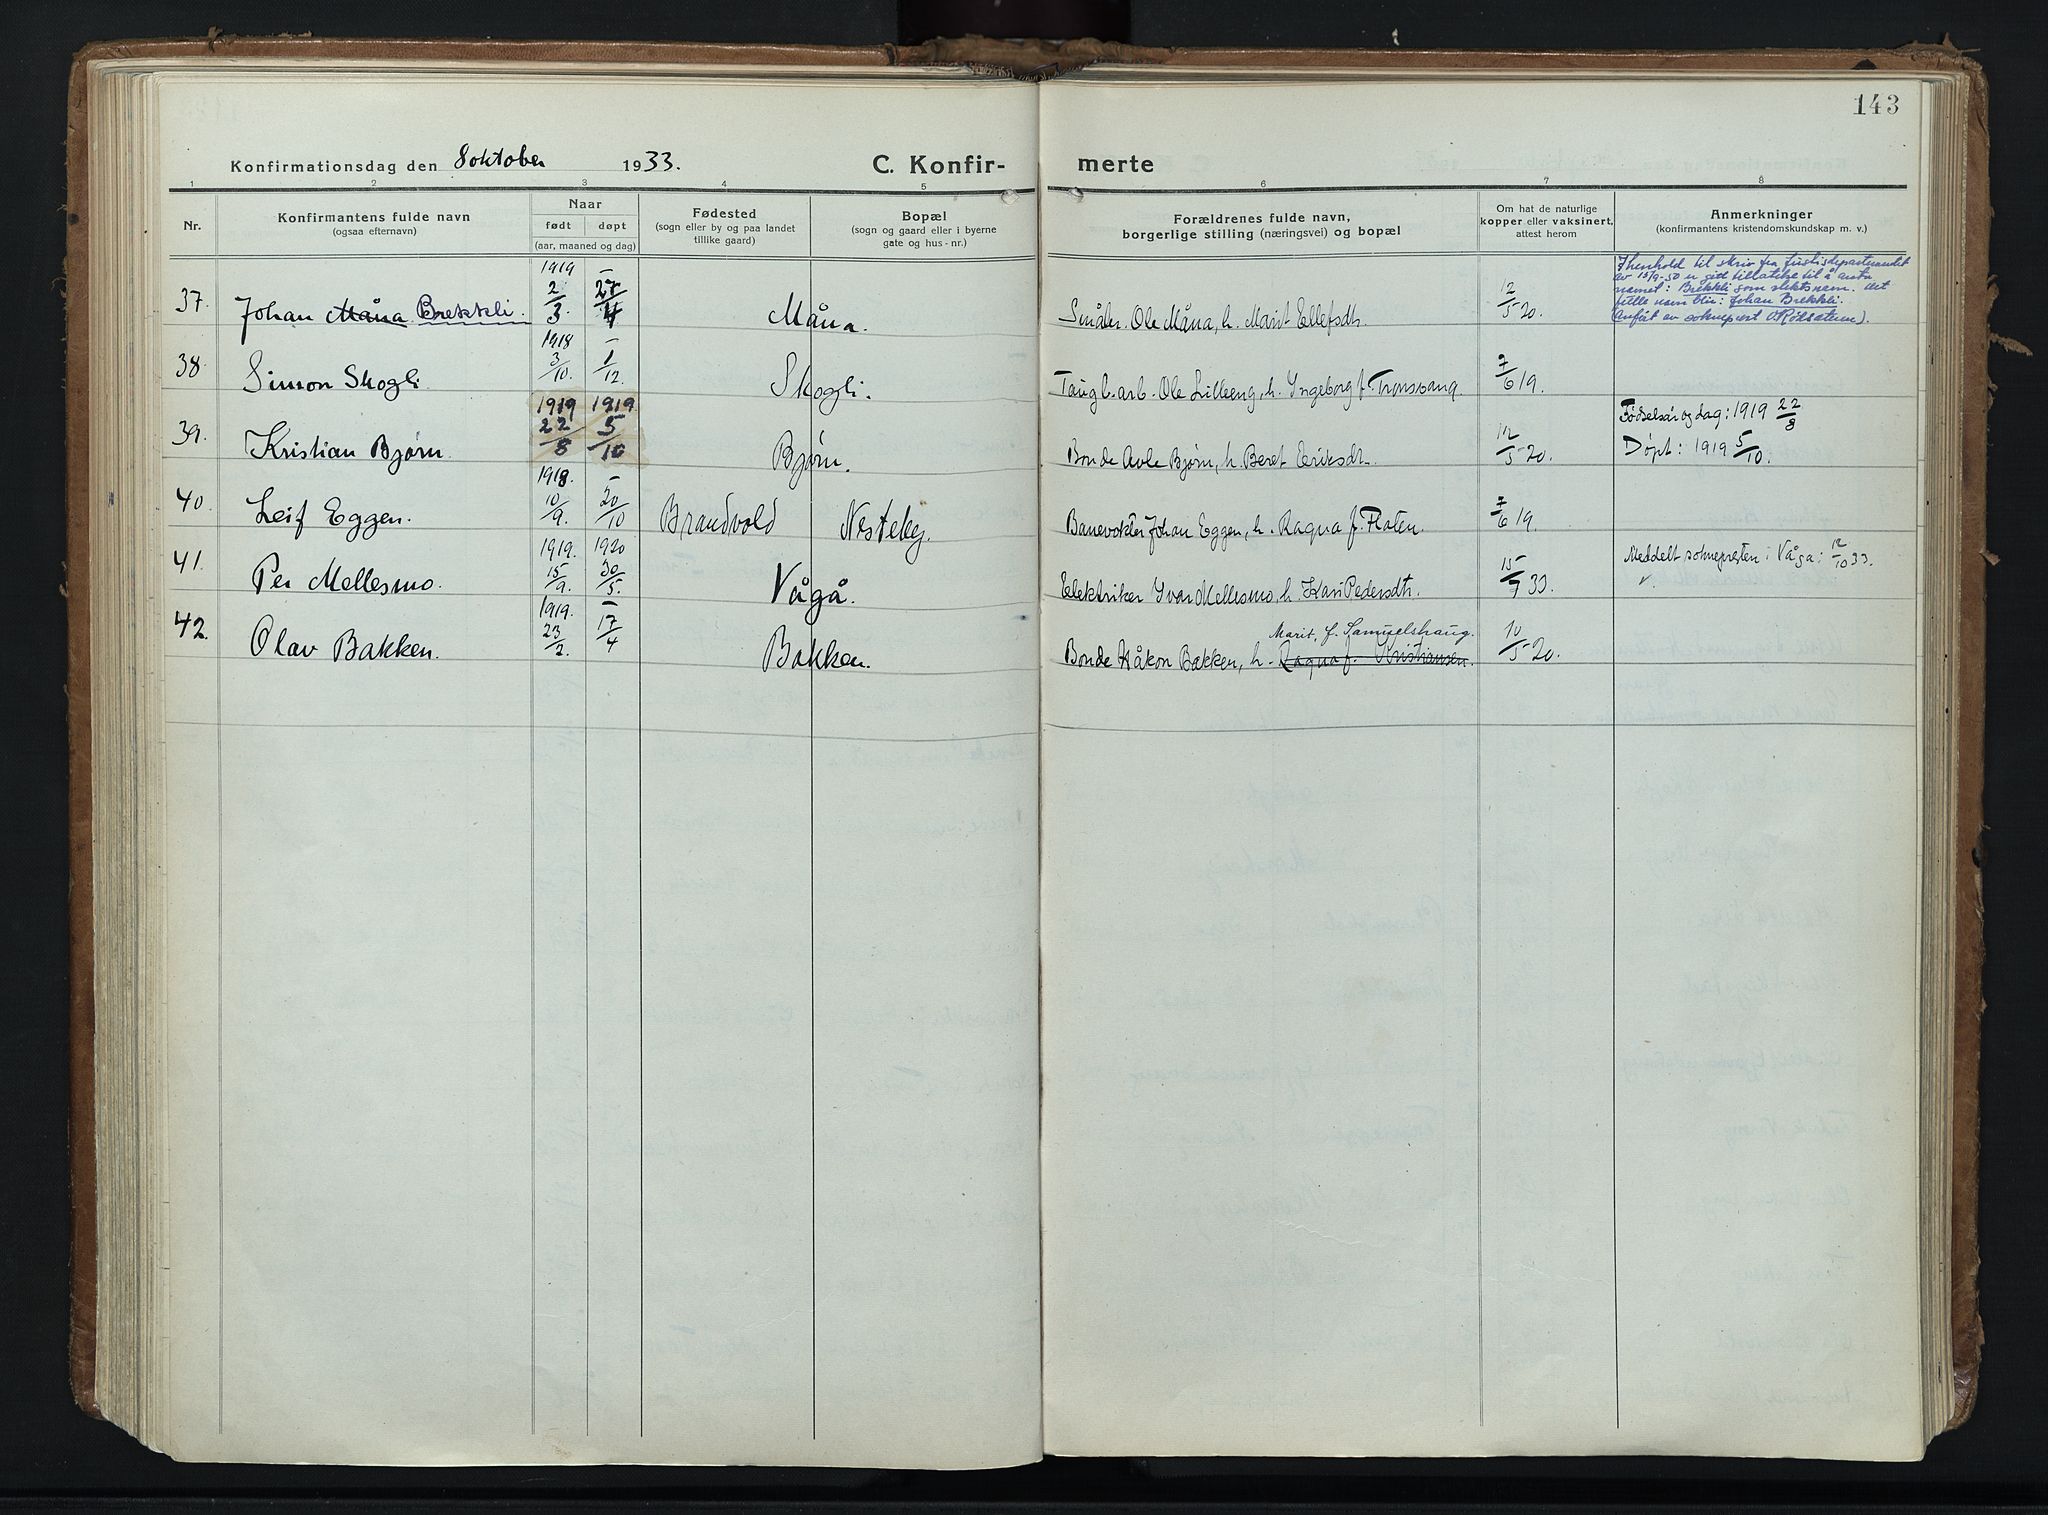 143
Konfirmationsdag den 8 oktober 1933. C. Konfir- merte
1 2 3 4 5 6 7 8
Nr. Konfirmantens fulde navn (ogsaa efternavn) Naar født døpt (aar, maaned og dag) Fødested (sogn eller by og paa landet tillike gaard) Bopæl (sogn og gaard eller i byerne gate og hus-nr.) Forældrenes fulde navn, borgerlige stilling (næringsvei) og bopæl Om hat de naturlige kopper eller vaksinert, attest herom Anmerkninger (konfirmantens kristendomskundskap m. v.)
37. Johan Måna Brekkli. 1919 2/3 – 27/4 Måna. Småbr. Ole Måna, h. Marit Ellefsdt. 12/5 20.
I henhold til skriv fra Justisdepartementet
av 15/9-50 er gitt tillatelse til å anta
namet: Brekkli som slektsnam. Det
fulle nam blir: Johan Brekkli.
(Anført av sokneprest
38. Simon Skogli 1918 3/10. – 1/12. Skogli. arb. Ole Lilleeng, h. Ingeborg f. Tronsvang. 7/6 19.
39. Kristian Bjørn. 1919 22/8 1919 5/10 Bjørn. Bonde Bjørn, h. Beret Eriksdt. 12/5 20. Fødselsår og dag: 1919 22/8
Døpt: 1919 5/10.
40. Leif Eggen. 1918. 10/9. – 20/10 Brandvold Nesteby. Banevokter Johan Eggen, h. Ragna f. Floten. 7/6 19.
41. Per Mellesmo. 1919. 15/9. 1920 30/5. Vågå. Elektriker Ivar Mellesmo, h. Kari Pedersdt. 15/9 33. Meddelt soknepresten i Vågå: 12/10 33.
v.
42. Olav Bakken. 1919. 23/2. – 17/4 Bakken. Bonde Håkon Bakken, h. Ragna f. Kristiansen. Marit, f. Samuelshaug. 10/5 20.